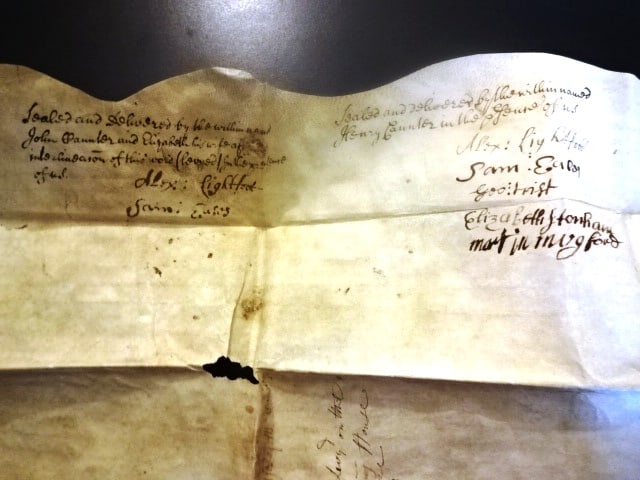 Sealed and delivered by the within named
John Caunter and Elizabeth his wife after
interlineacon of this word (lower) in the presence
of us.
Alex: Lightfoot
Sam: Eales
Sealed and delivered by the within named
Henry Caunter in the presence of us
Alex: Lightfoot
Sam: Eales
Geo:
Elizabeth Stenham
martin mugford
on that
House